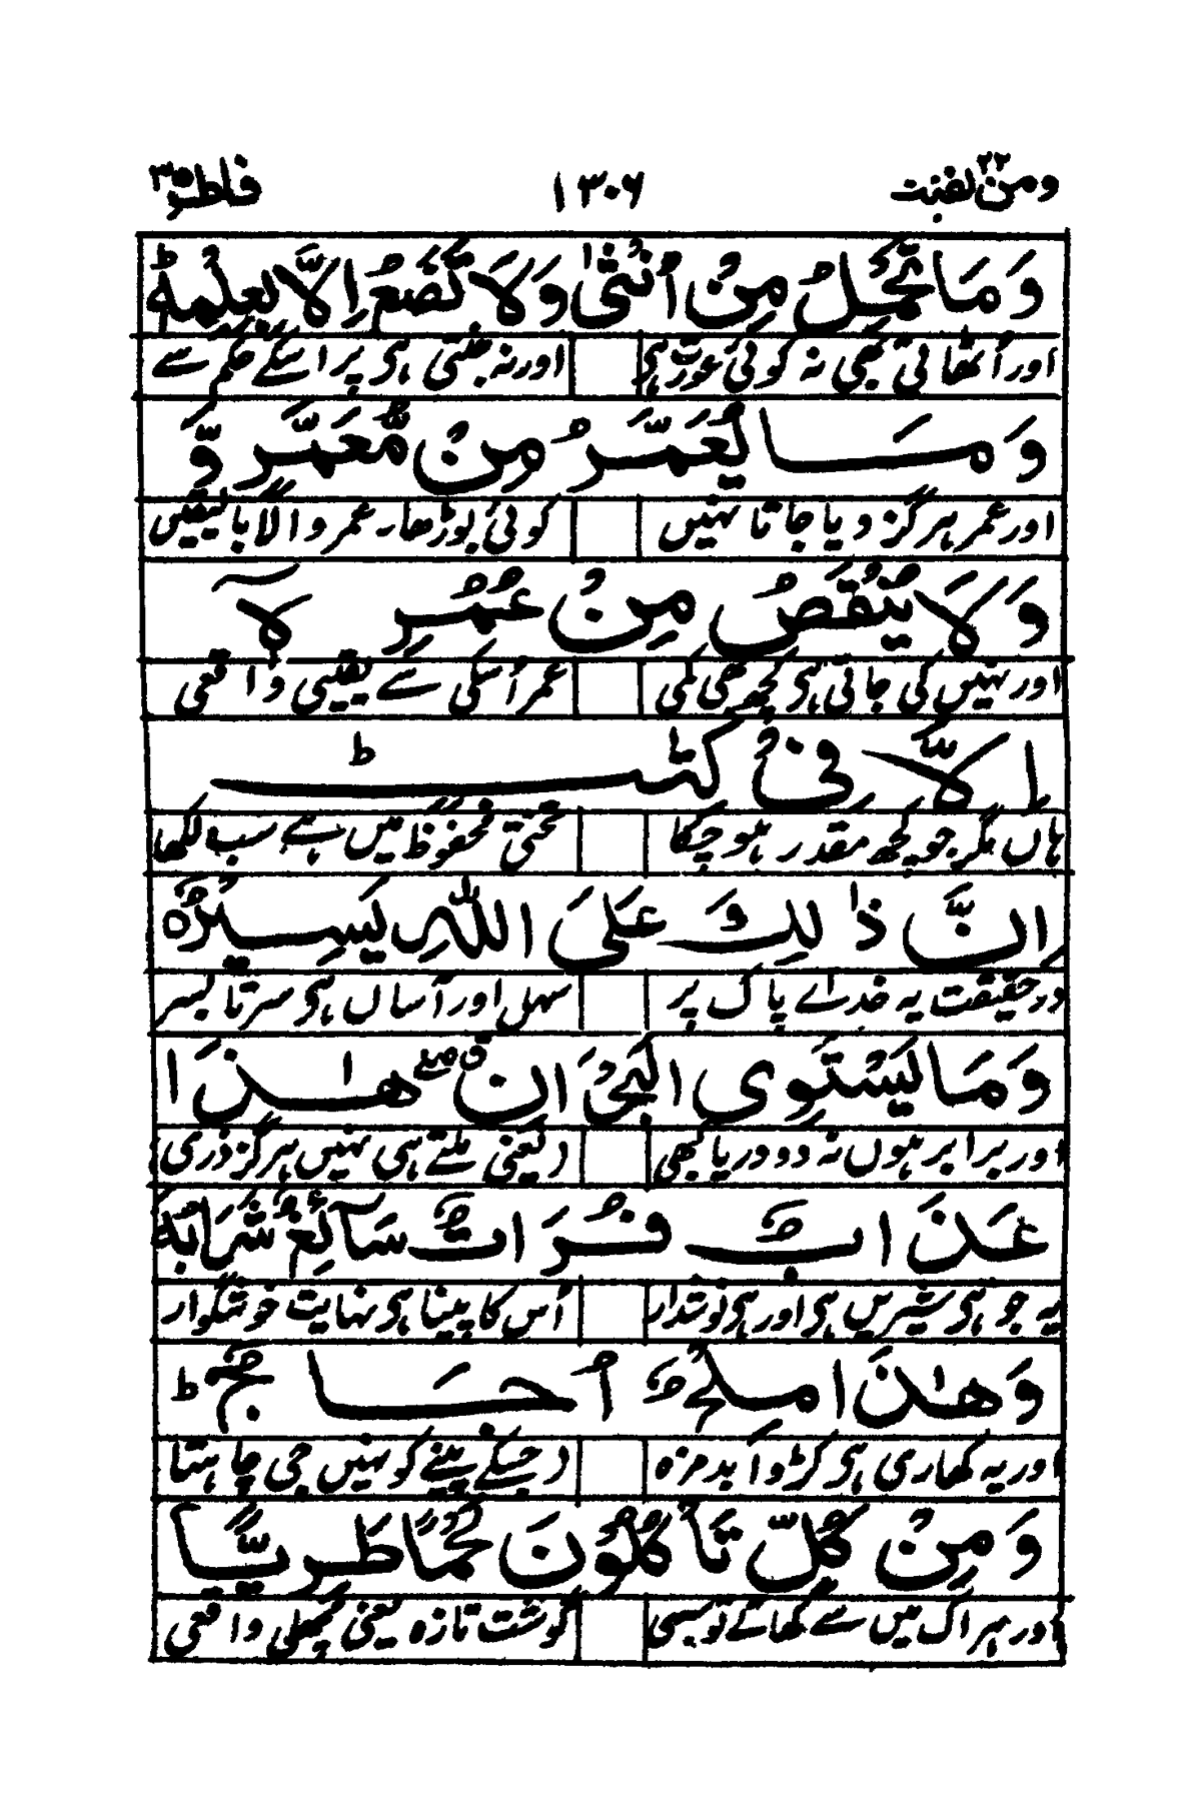 ومن يقنت ٢٢ ١٣٠٦ فاطر ٣٥
وَمَا تَحْمِلُ مِنْ اُنْثٰى وَلَا تَضَعُ اِلَّا بِعِلْمِهٖ ؕ
اور اُٹھاتی بھی نہ کوئی عورت ہی اور نہ جنتی ہی پر اسکے حکم سے
وَمَا يُعَمَّرُ مِنْ مُّعَمَّرٍ وَّ
اور عمر ہرگز دیا جاتا نہیں کوئی بوڑھا، عمر والا بالیقیں
وَلَا يُنْقَصُ مِنْ عُمُرِ لآ
اور نہیں کی جاتی ہی کچھ بھی کمی عمر اُسکی سے یقینی واقعی
اِلَّا فِىْ كِتٰبٍ ؕ
ہاں مگر جو کچھ مقدر ہو چکا تختیِ محفوظ میں ہے سب لکھا
اِنَّ ذٰلِكَ عَلَى اللّٰهِ يَسِيْرٌ ٥
در حقیقت یہ خدائے پاک پر سہل اور آساں ہی سرتا بسر
وَمَا يَسْتَوِى الْبَحْرَانِ ۖ ق هٰذَا
اور برابر ہوں نہ دو دریا کبھی (یعنی ملتے ہی نہیں ہرگز ذری
عَذْبٌ فُرَاتٌ سَآئِغٌ شَرَابُهٗ
یہ جو ہی شیریں ہی اور ہی نوشدار اُس کا پینا ہی نہایت خوشگوار
وَهٰذَا مِلْحٌ اُجَاجٌ ؕ
اور یہ کھاری ہی کڑوا بدمزہ (جسکے پینے کو نہیں جی چاہتا
وَمِنْ كُلٍّ تَاْكُلُوْنَ لَحْمًا طَرِيًّا
اور ہر اک میں سے کھاتے تو سبھی گوشت تازہ یعنی مچھلی واقعی